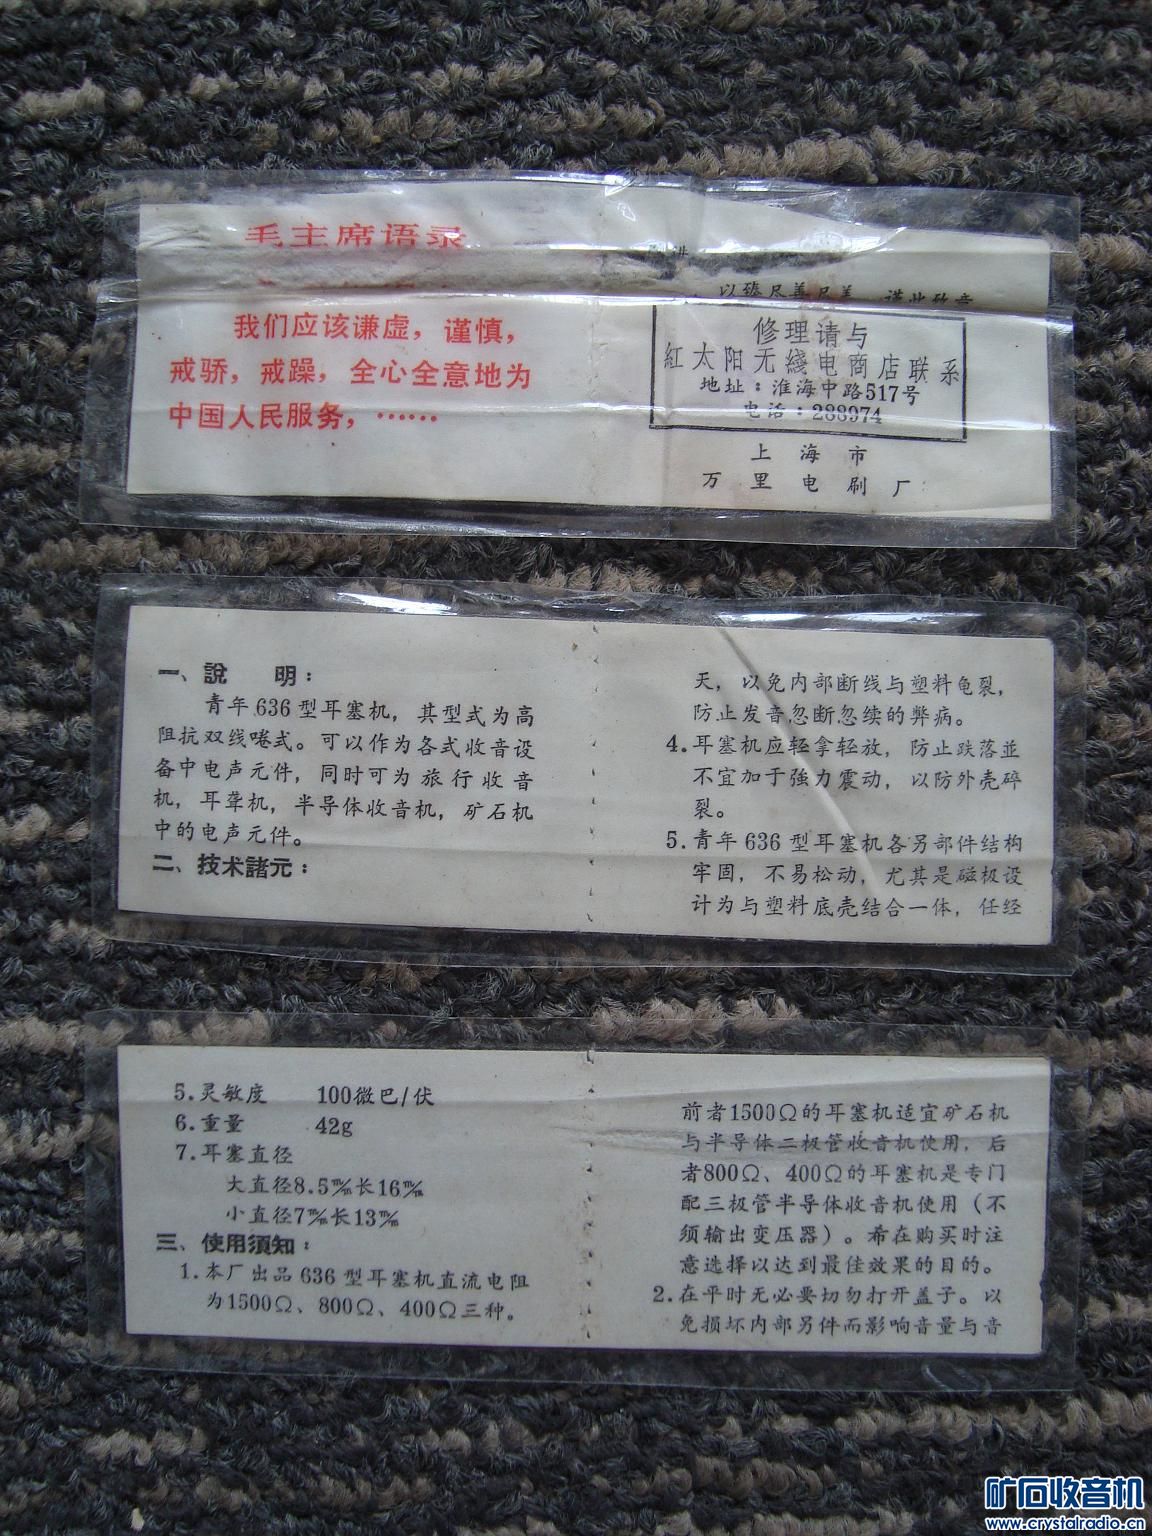 毛主席语录
我们应该谦虚，谨慎，
戒骄，戒躁，全心全意地为
中国人民服务，……
以臻尽善尽美，谨此致意
修理请与
紅太阳无綫电商店联系
地址：淮海中路517号
电话：288974
上海市
万里电刷厂
一、說 明：
青年636型耳塞机，其型式为高
阻抗双线啳式。可以作为各式收音设
备中电声元件，同时可为旅行收音
机，耳聋机，半导体收音机，矿石机
中的电声元件。
二、技术諸元：
天，以免内部断线与塑料龟裂，
防止发音忽断忽续的弊病。
4.耳塞机应轻拿轻放，防止跌落並
不宜加于強力震动，以防外壳碎
裂。
5.青年636型耳塞机各另部件结构
牢固，不易松动，尤其是磁极设
计为与塑料底壳结合一体，任经
5.灵敏度 100微巴/伏
6.重量 42g
7.耳塞直径
大直径8.5m/m长16m/m
小直径7m/m长13m/m
三、使用須知：
1.本厂出品636型耳塞机直流电阻
为1500Ω、800Ω、400Ω三种。
前者1500Ω的耳塞机适宜矿石机
与半导体二极管收音机使用，后
者800Ω、400Ω的耳塞机是专门
配三极管半导体收音机使用（不
须输出变压器）。希在购买时注
意选择以达到最佳效果的目的。
2.在平时无必要切勿打开盖子。以
免损坏内部另件而影响音量与音
矿石收音机
www.crystalradio.cn